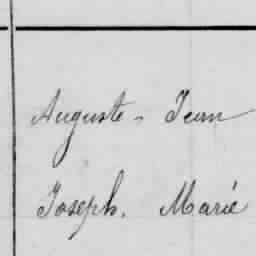 Auguste - Jean
Joseph. Marie